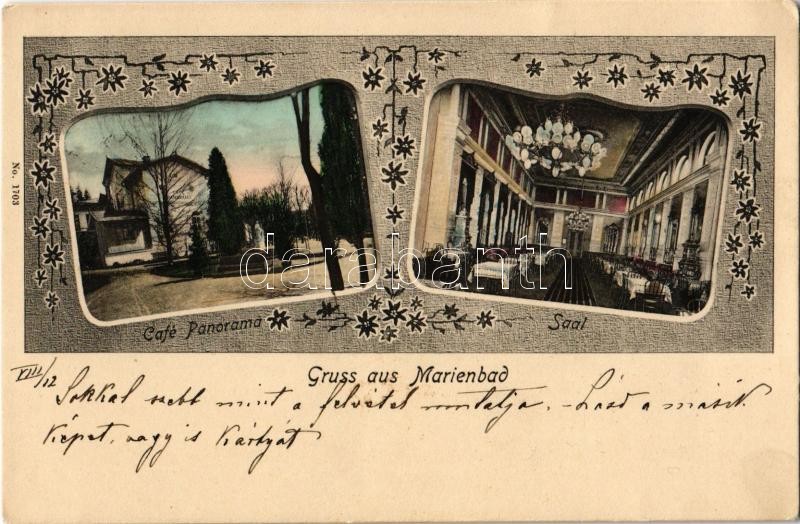 No. 1703
Café Panorama
Saal
darabanth
Gruss aus Marienbad
VIII/12
Sokkal szebb mint a felvétel mutatja. - Lásd a másik
képet, vagy is kártyát